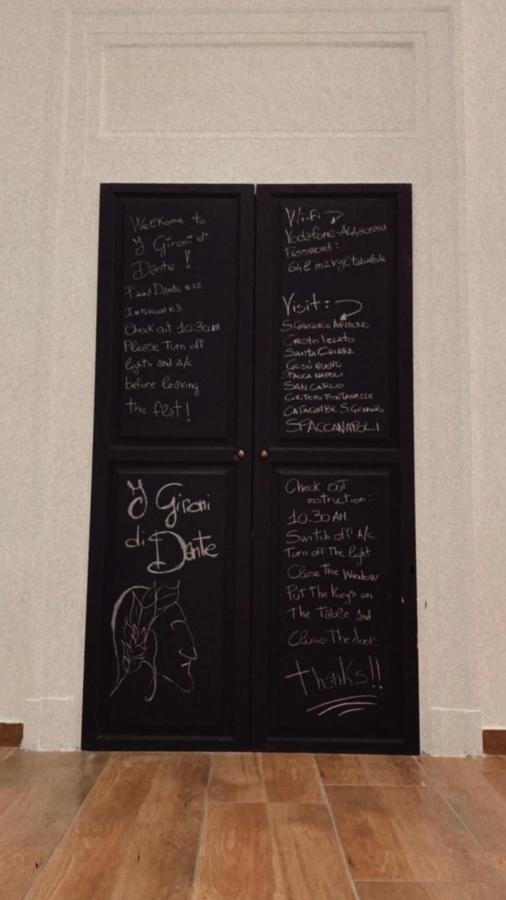 Welcome to
I Gironi di
Dante !
Piazza Dante N 22
Intercom N 8
Check out 10:30 AM
Please Turn off
lights and A/c
before leaving
the flat!
I Gironi
di Dante
Wi-fi
Vodafone-
Password:
Visit:
S. GREGORIO ARMENO
CRISTO VELATO
SANTA CHIARA
GESÙ NUOVO
NAPOLI
SAN CARLO
FONTANELLE
CATACOMBE S. GENNARO
SPACCANAPOLI
Check out
instruction:
10.30 AM
Switch off A/c
Turn off The light
Close The Window
Put The Keys on
The Table And
Close The door
Thanks!!